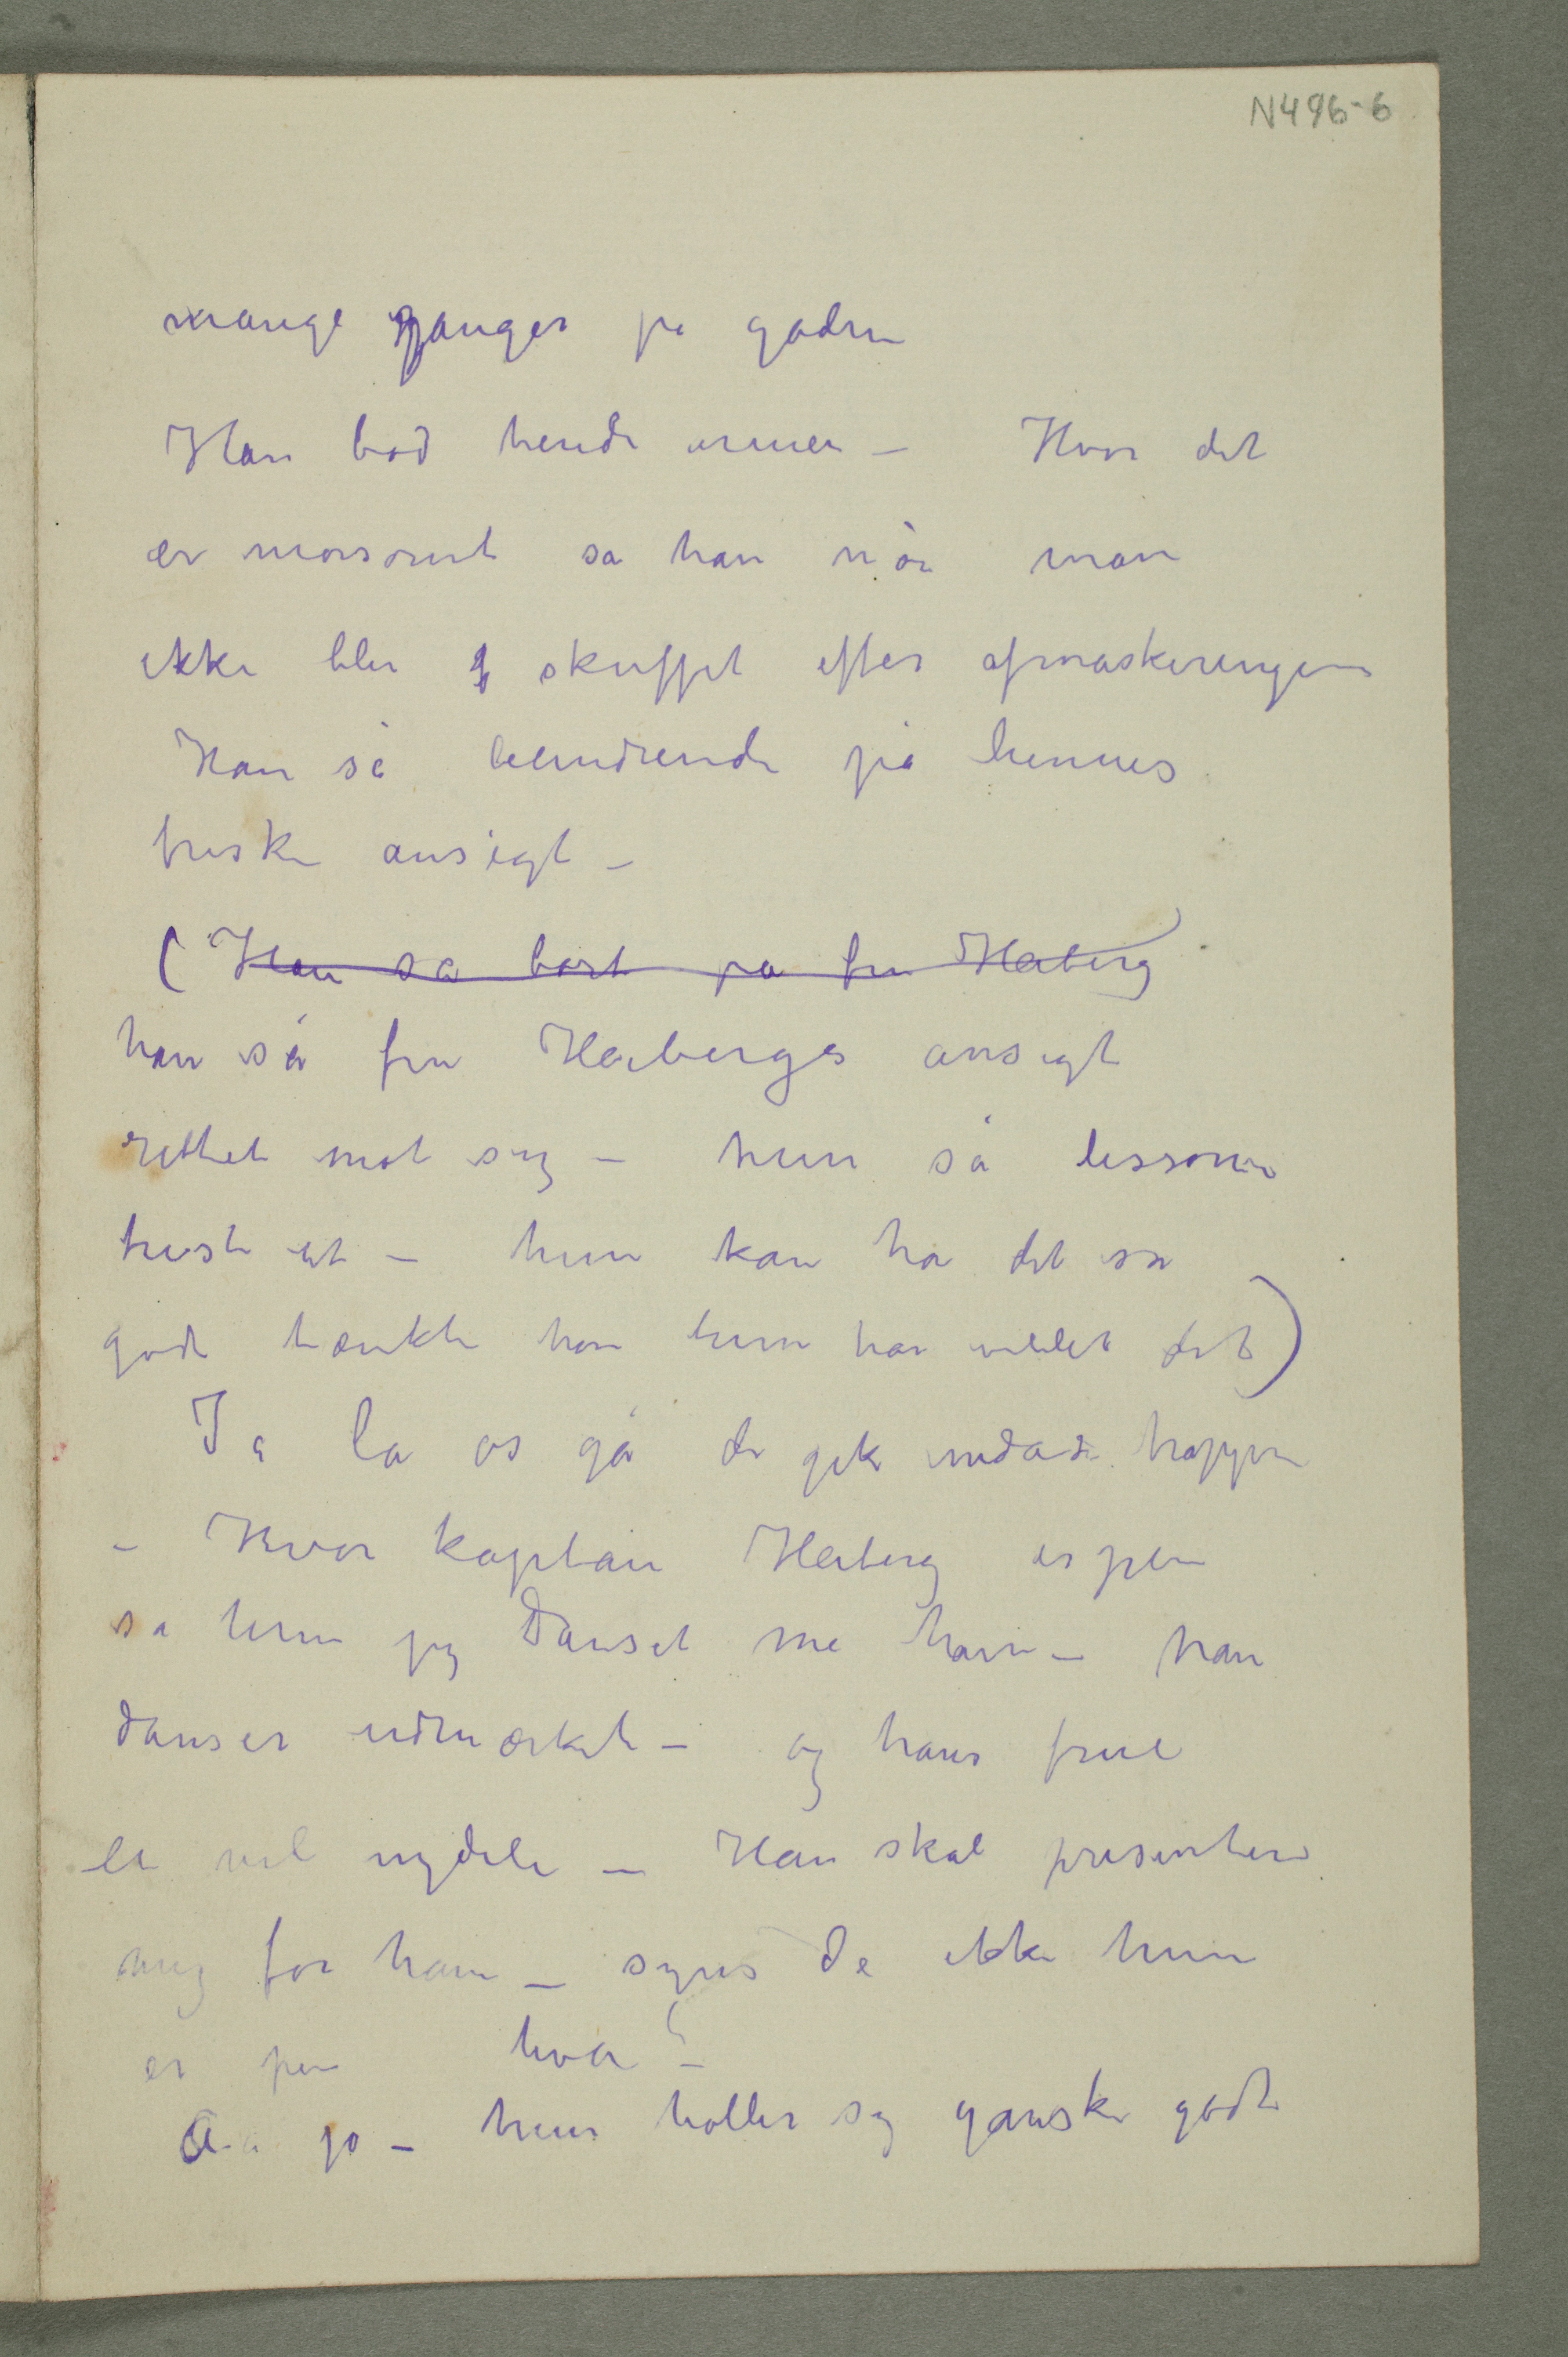 N496-6
mange ganger på gaden
Han bød hende armen – Hvor det
er morsomt sa han når man
ikke blir skuffet efter afmaskeringen
Han så beundrende på hennes
friske ansigt –
(Han så bort på fru Heiberg
han så fru Heibergs ansigt
rettet mot sig – hun så lissom
trist ut – hun kan ha det så
godt tænkte han hun har villet det)
Ja la os gå de gik nedad trappen
– Hvor kaptain Heiberg er pen
sa hun jeg danset me ham – han
danser udmærket – og hans frue
er vel nydeli – Han skal presentere
mig for ham – synes De ikke hun
er pen hva? –
Aa jo – hun holler sig ganske godt